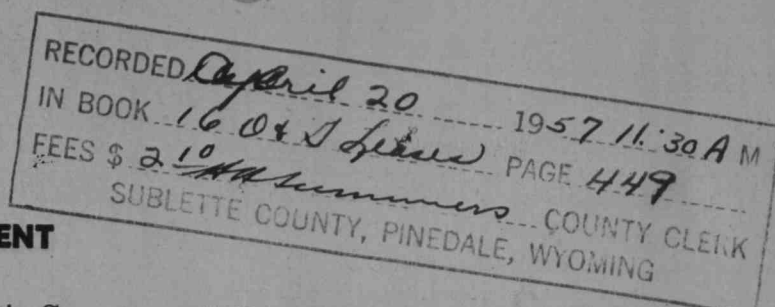 RECORDED April 20 1957 11:30 A M
IN BOOK 16 O & G Leases PAGE 449
FEES $ 2 10 COUNTY CLERK
SUBLETTE COUNTY, PINEDALE, WYOMING
ENT